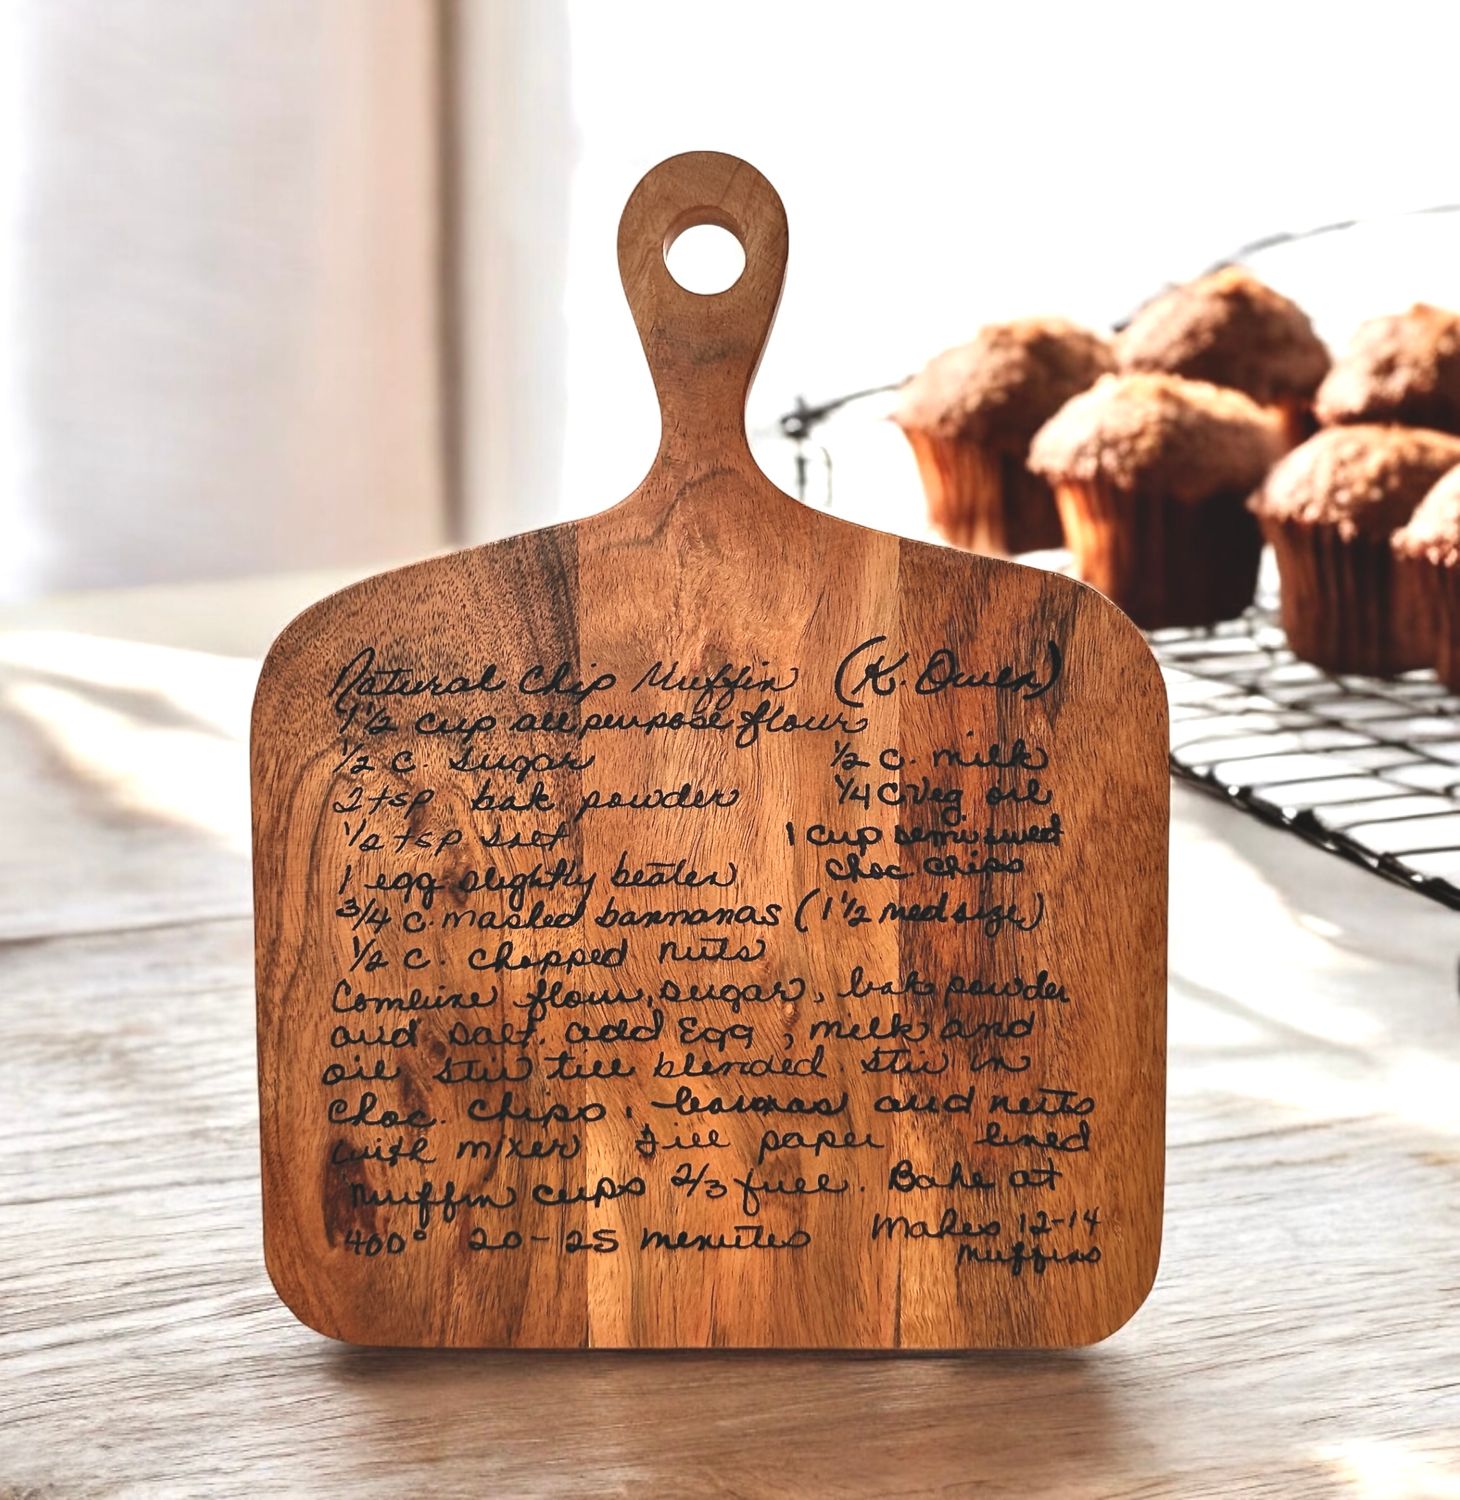 Natural Chip Muffin (K. Owen)
1 1/2 cup all purpose flour
1/2 c. sugar 1/2 c. milk
2 tsp bak powder 1/4 c veg oil
1/2 tsp salt 1 cup semi sweet
1 egg slightly beaten choc chips
3/4 c. mashed bannanas (1 1/2 med size)
1/2 c. chopped nuts
Combine flour, sugar, bak powder
and salt. add Egg, milk and
oil stir till blended. stir in
choc. chips, bananas and nuts
with mixer fill paper lined
muffin cups 2/3 full. Bake at
400° 20-25 minutes Makes 12-14
muffins